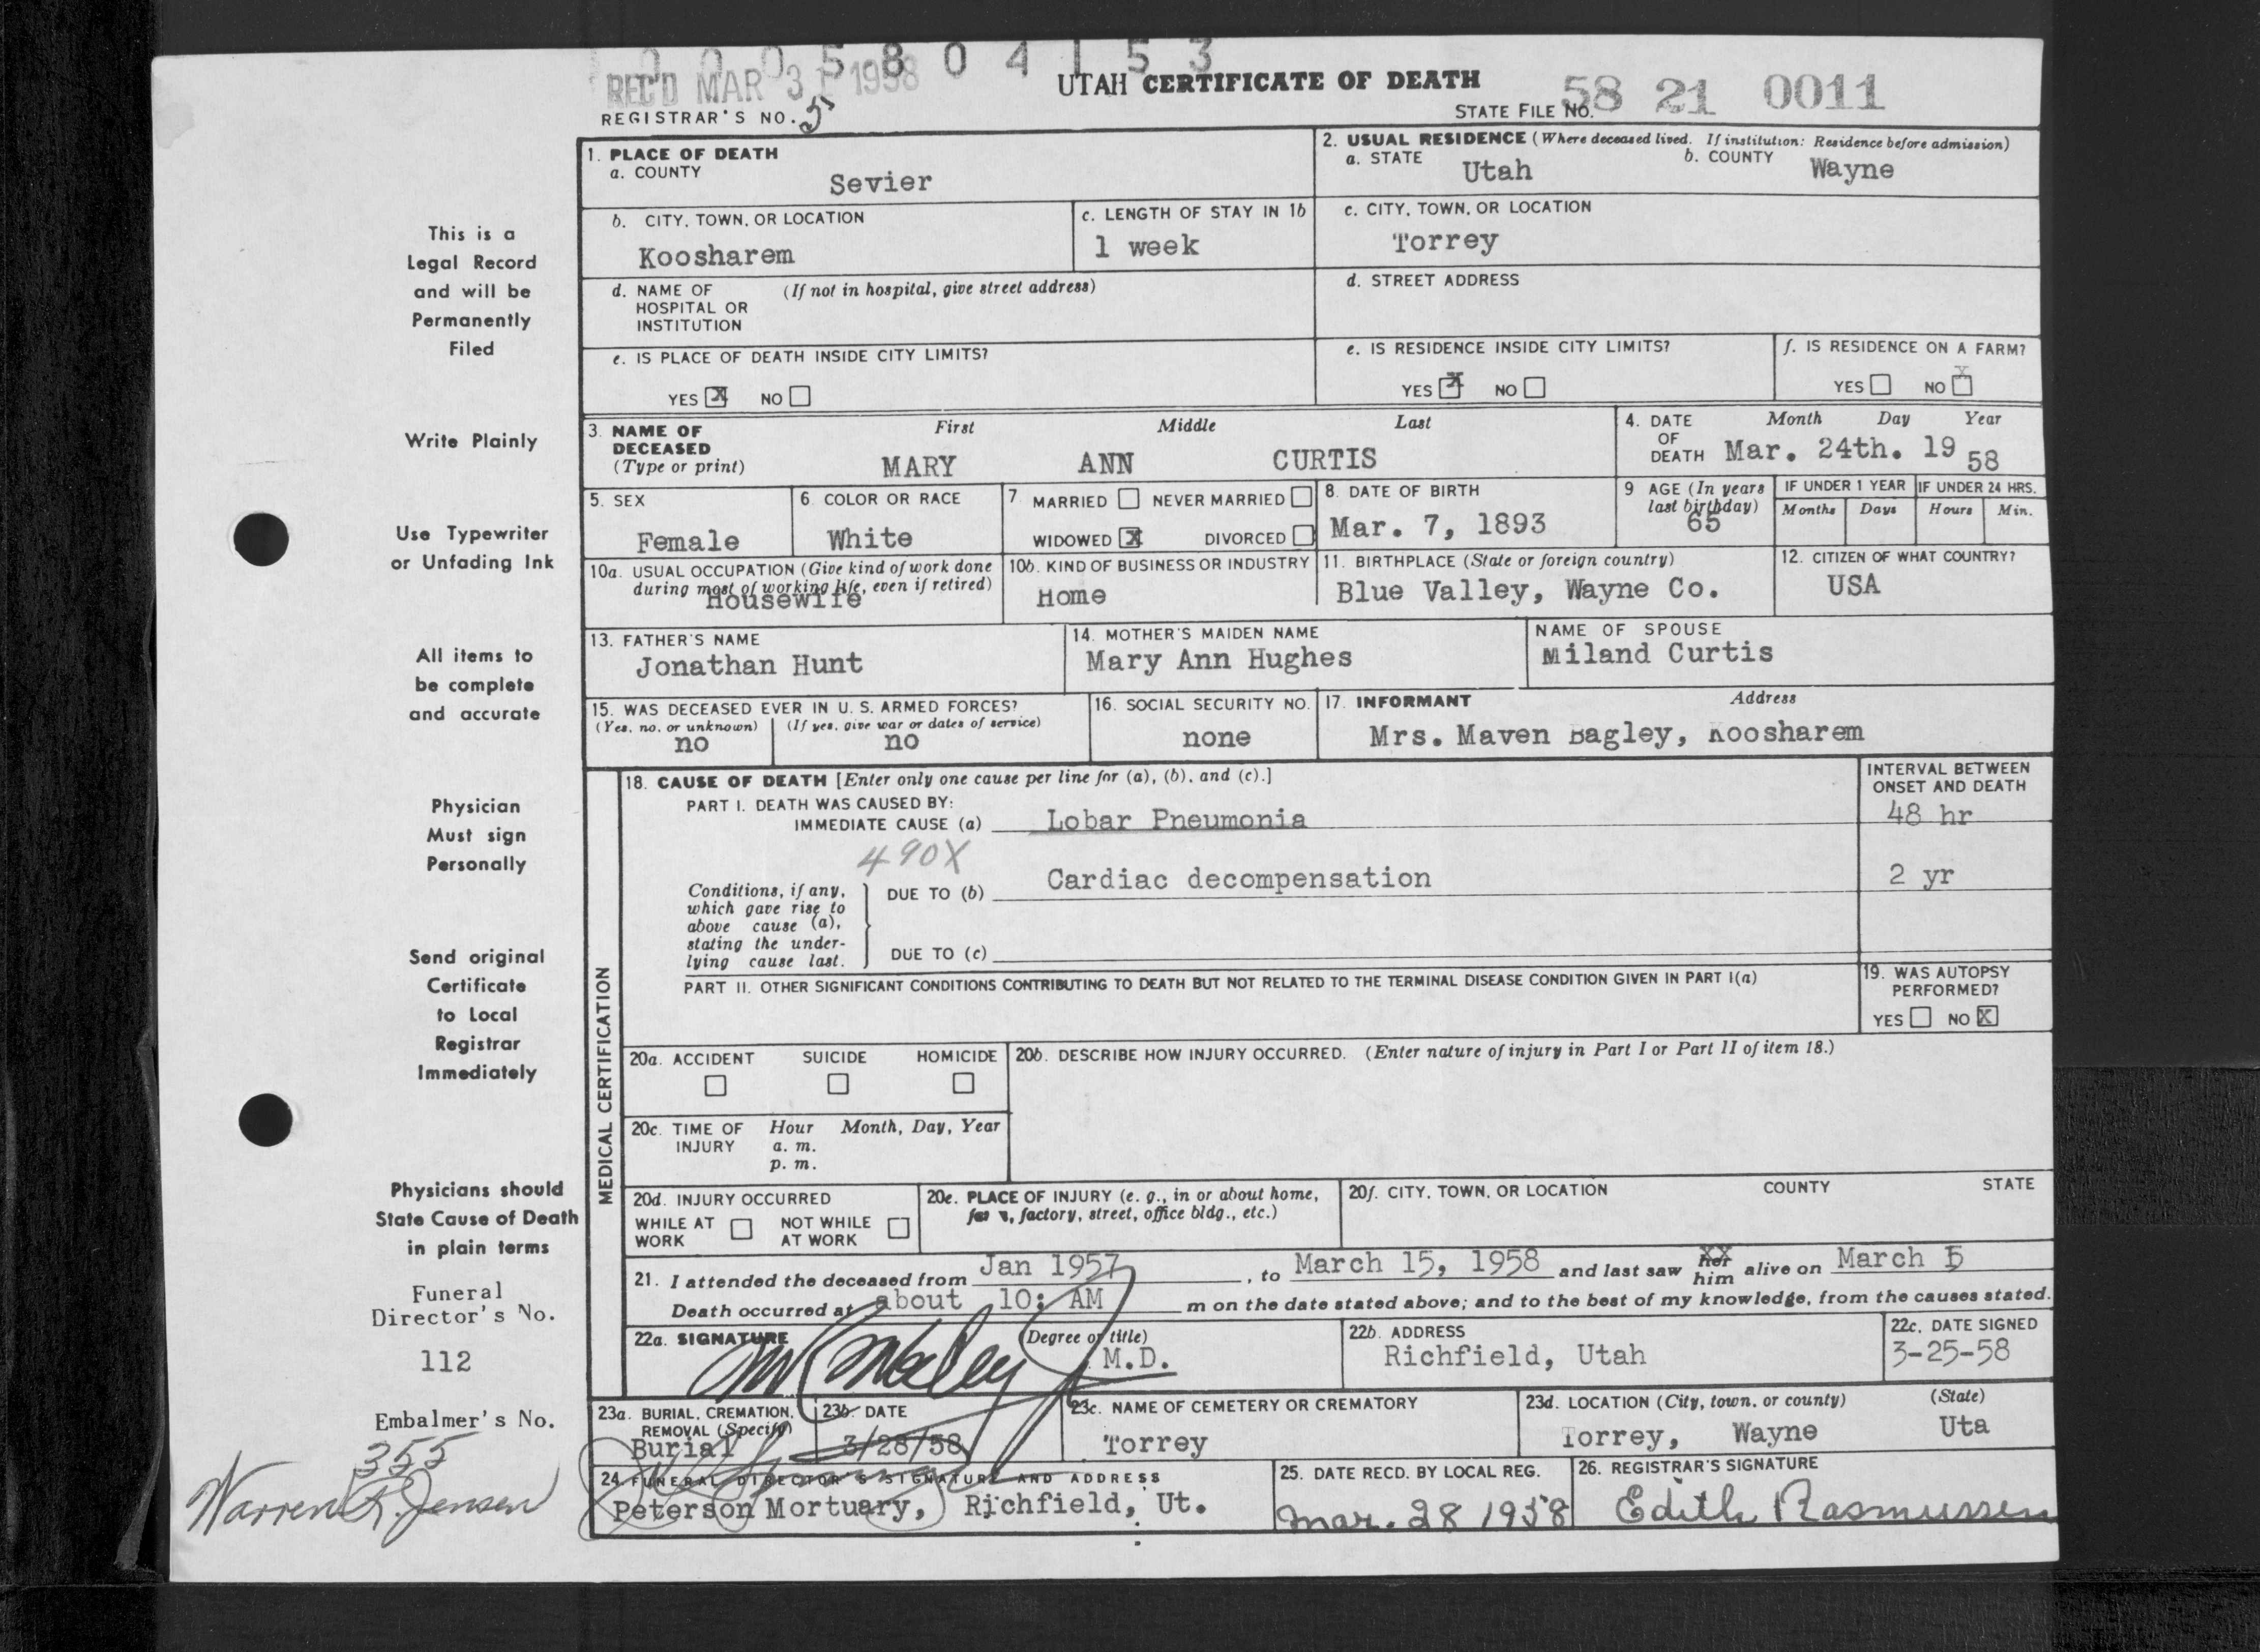 0 0 0 5 8 0 4 1 5 3
REC'D MAR 31 1958
UTAH CERTIFICATE OF DEATH
REGISTRAR'S NO. 5
STATE FILE NO. 58 21 0011
1. PLACE OF DEATH
a. COUNTY
Sevier
2. USUAL RESIDENCE (Where deceased lived. If institution: Residence before admission)
a. STATE Utah b. COUNTY Wayne
b. CITY, TOWN, OR LOCATION
Koosharem
c. LENGTH OF STAY IN 1b
1 week
c. CITY, TOWN, OR LOCATION
Torrey
d. NAME OF (If not in hospital, give street address)
HOSPITAL OR
INSTITUTION
d. STREET ADDRESS
e. IS PLACE OF DEATH INSIDE CITY LIMITS?
YES X NO
e. IS RESIDENCE INSIDE CITY LIMITS?
YES X NO
f. IS RESIDENCE ON A FARM?
YES NO X
3. NAME OF DECEASED (Type or print)
First Middle Last
MARY ANN CURTIS
4. DATE OF DEATH
Month Day Year
Mar. 24th. 19 58
5. SEX
Female
6. COLOR OR RACE
White
7. MARRIED NEVER MARRIED
WIDOWED X DIVORCED
8. DATE OF BIRTH
Mar. 7, 1893
9 AGE (In years last birthday)
65
IF UNDER 1 YEAR
Months Days
IF UNDER 24 HRS.
Hours Min.
10a. USUAL OCCUPATION (Give kind of work done
during most of working life, even if retired)
Housewife
10b. KIND OF BUSINESS OR INDUSTRY
Home
11. BIRTHPLACE (State or foreign country)
Blue Valley, Wayne Co.
12. CITIZEN OF WHAT COUNTRY?
USA
13. FATHER'S NAME
Jonathan Hunt
14. MOTHER'S MAIDEN NAME
Mary Ann Hughes
NAME OF SPOUSE
Miland Curtis
15. WAS DECEASED EVER IN U. S. ARMED FORCES?
(Yes, no, or unknown) (If yes, give war or dates of service)
no no
16. SOCIAL SECURITY NO.
none
17. INFORMANT Address
Mrs. Maven Bagley, Koosharem
MEDICAL CERTIFICATION
18. CAUSE OF DEATH [Enter only one cause per line for (a), (b), and (c).]
INTERVAL BETWEEN
ONSET AND DEATH
PART I. DEATH WAS CAUSED BY:
IMMEDIATE CAUSE (a) Lobar Pneumonia 48 hr
490X
Conditions, if any,
which gave rise to
above cause (a),
stating the under-
lying cause last.
DUE TO (b) Cardiac decompensation 2 yr
DUE TO (c)
PART II. OTHER SIGNIFICANT CONDITIONS CONTRIBUTING TO DEATH BUT NOT RELATED TO THE TERMINAL DISEASE CONDITION GIVEN IN PART I(a)
19. WAS AUTOPSY
PERFORMED?
YES NO X
20a. ACCIDENT SUICIDE HOMICIDE
20b. DESCRIBE HOW INJURY OCCURRED. (Enter nature of injury in Part I or Part II of item 18.)
20c. TIME OF INJURY
Hour Month, Day, Year
a. m.
p. m.
20d. INJURY OCCURRED
WHILE AT WORK
NOT WHILE AT WORK
20e. PLACE OF INJURY (e. g., in or about home,
factory, street, office bldg., etc.)
20f. CITY, TOWN, OR LOCATION COUNTY STATE
21. I attended the deceased from Jan 1957, to March 15, 1958 and last saw her him alive on March 15
Death occurred at about 10: AM m on the date stated above; and to the best of my knowledge, from the causes stated.
22a. SIGNATURE (Degree or title)
M.D.
22b. ADDRESS
Richfield, Utah
22c. DATE SIGNED
3-25-58
23a. BURIAL, CREMATION,
REMOVAL (Specify)
Burial
23b. DATE
3/28/58
23c. NAME OF CEMETERY OR CREMATORY
Torrey
23d. LOCATION (City, town, or county) (State)
Torrey, Wayne Uta
24. FUNERAL DIRECTOR'S SIGNATURE AND ADDRESS
Peterson Mortuary, Richfield, Ut.
25. DATE RECD. BY LOCAL REG.
Mar. 28 1958
26. REGISTRAR'S SIGNATURE
Edith Rasmussen
This is a
Legal Record
and will be
Permanently
Filed
Write Plainly
Use Typewriter
or Unfading Ink
All items to
be complete
and accurate
Physician
Must sign
Personally
Send original
Certificate
to Local
Registrar
Immediately
Physicians should
State Cause of Death
in plain terms
Funeral
Director's No.
112
Embalmer's No.
355
Warren R. Jensen